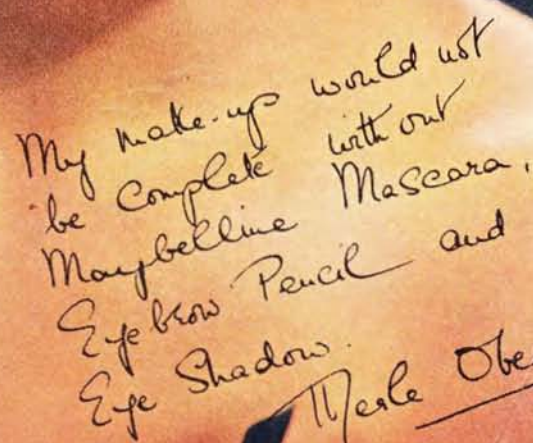 My make-up would not
be Complete without
Maybelline Mascara,
Eyebrow Pencil and
Eye Shadow.
Merle Obe